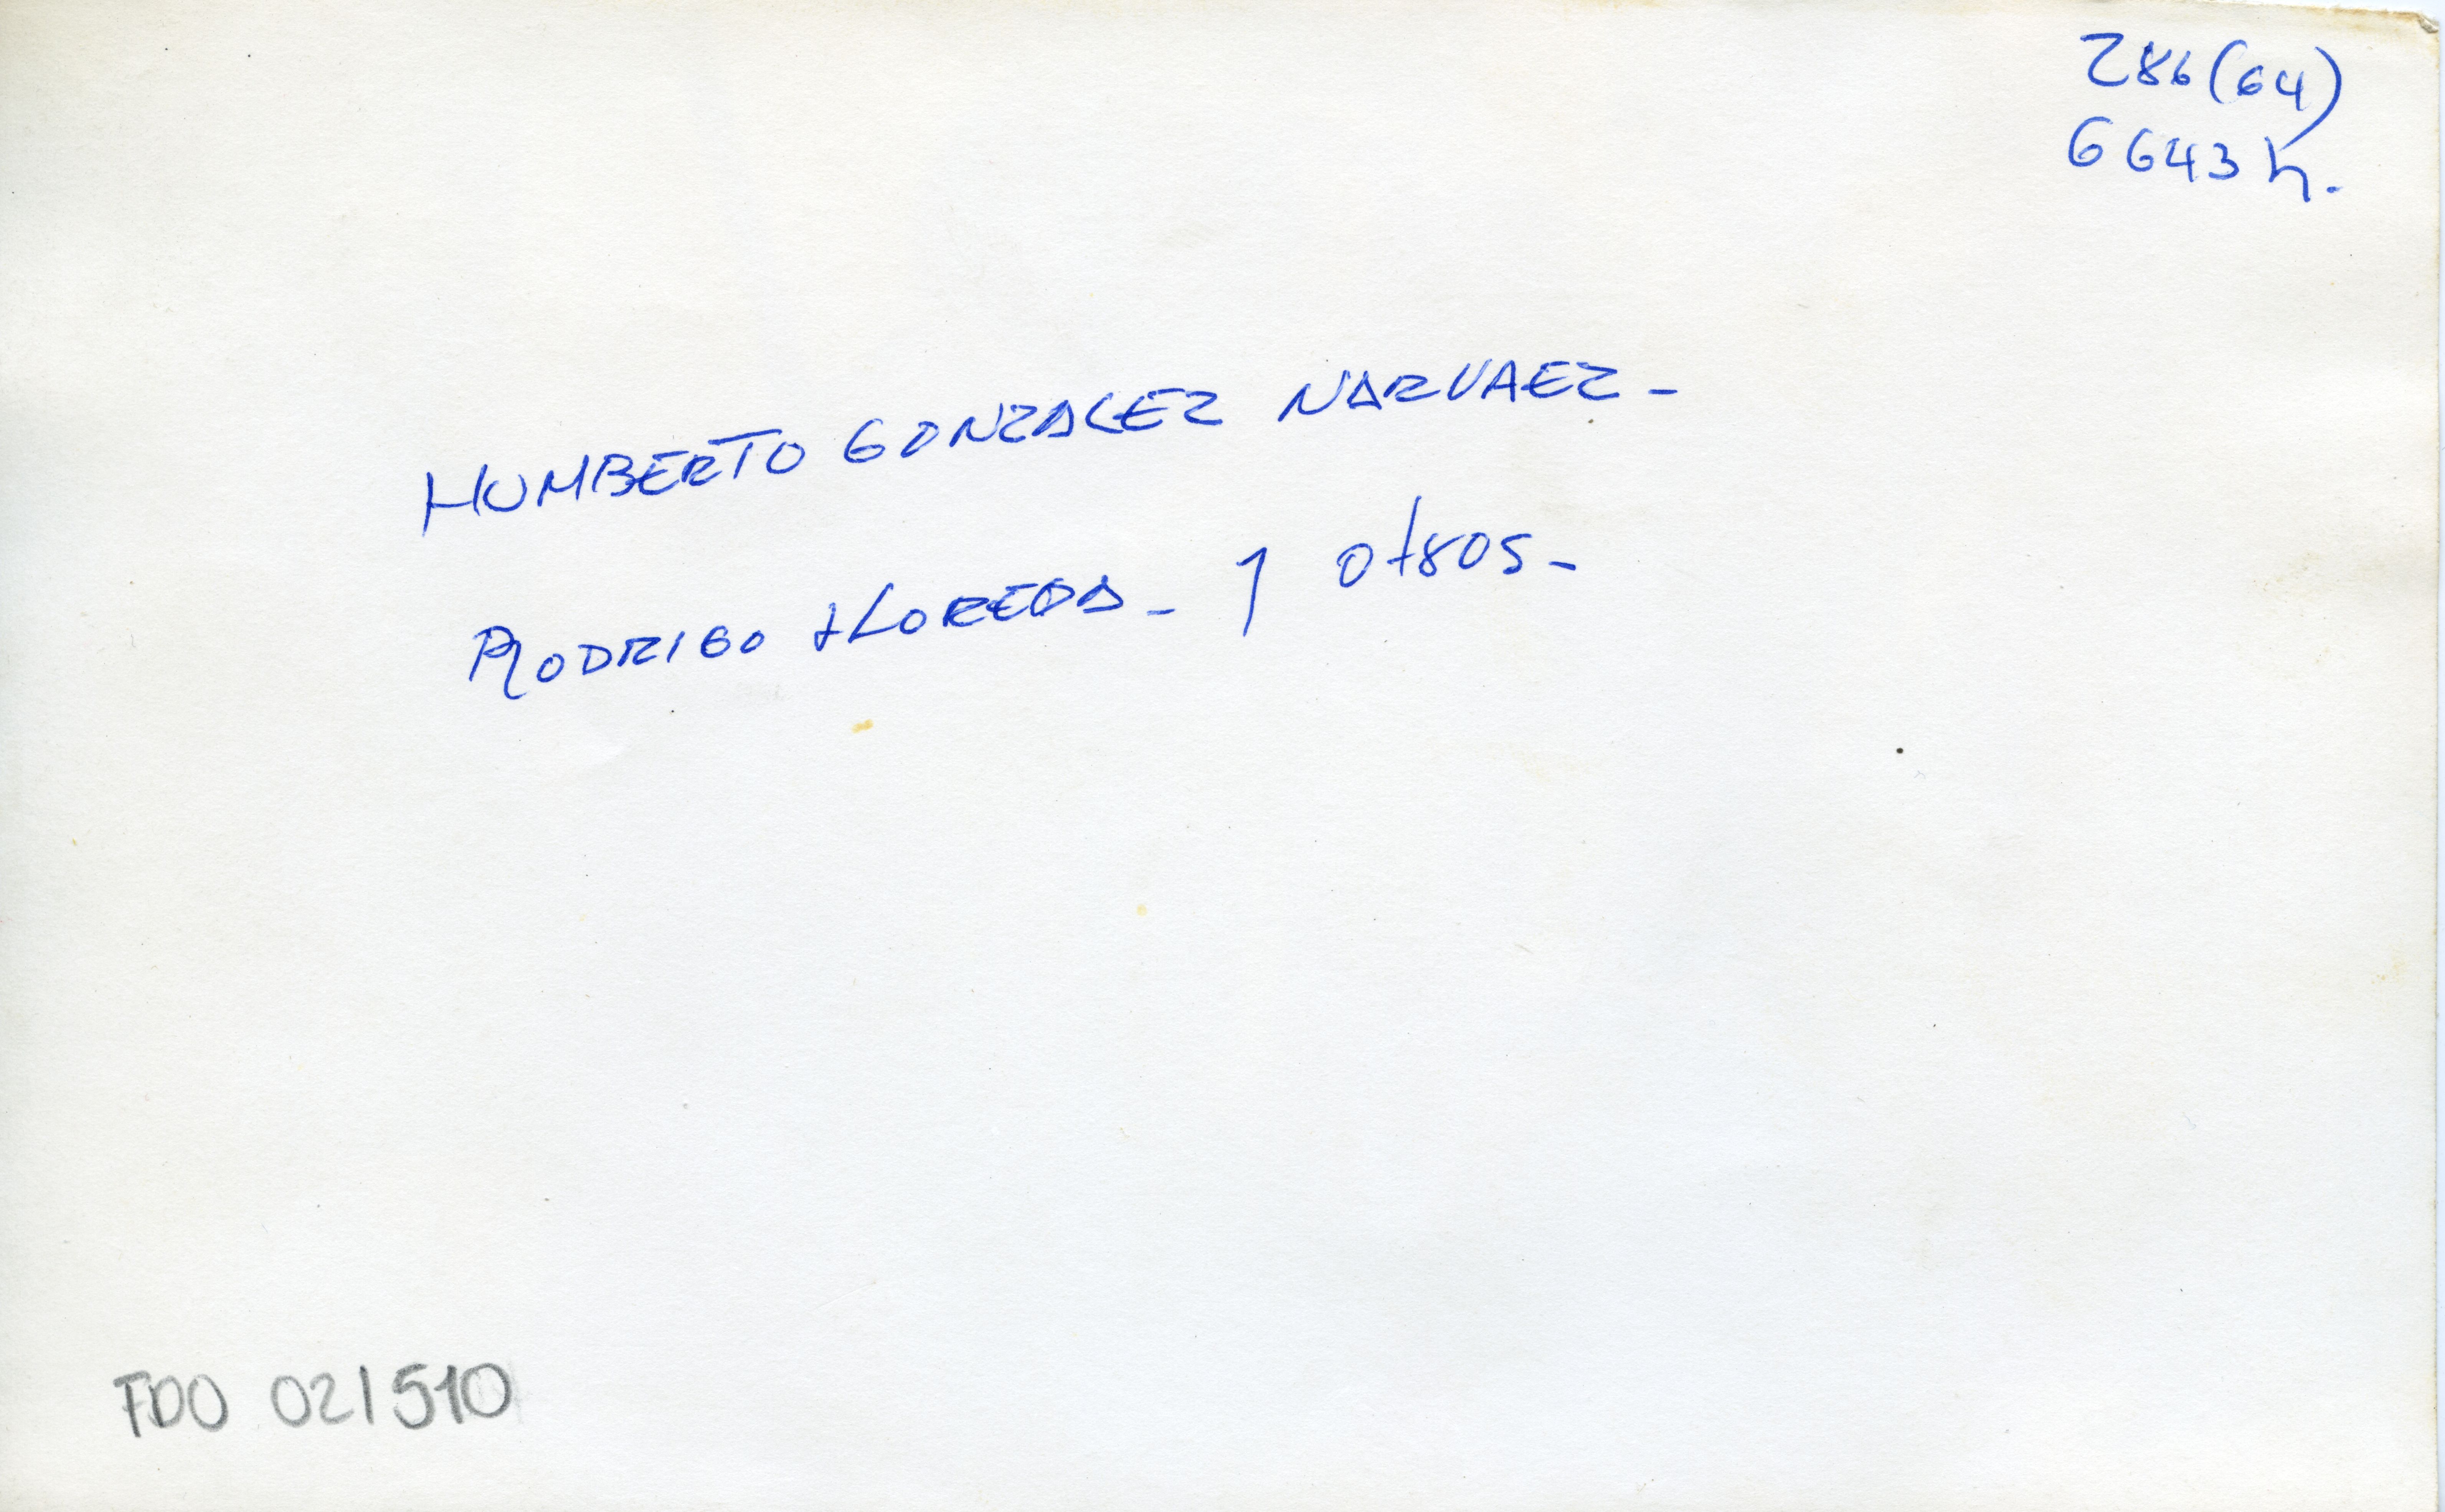 286(64)
6643 h.
HUMBERTO GONZALEZ NARVAEZ -
RODRIGO LLOREDA - y otros -
FDO 021510